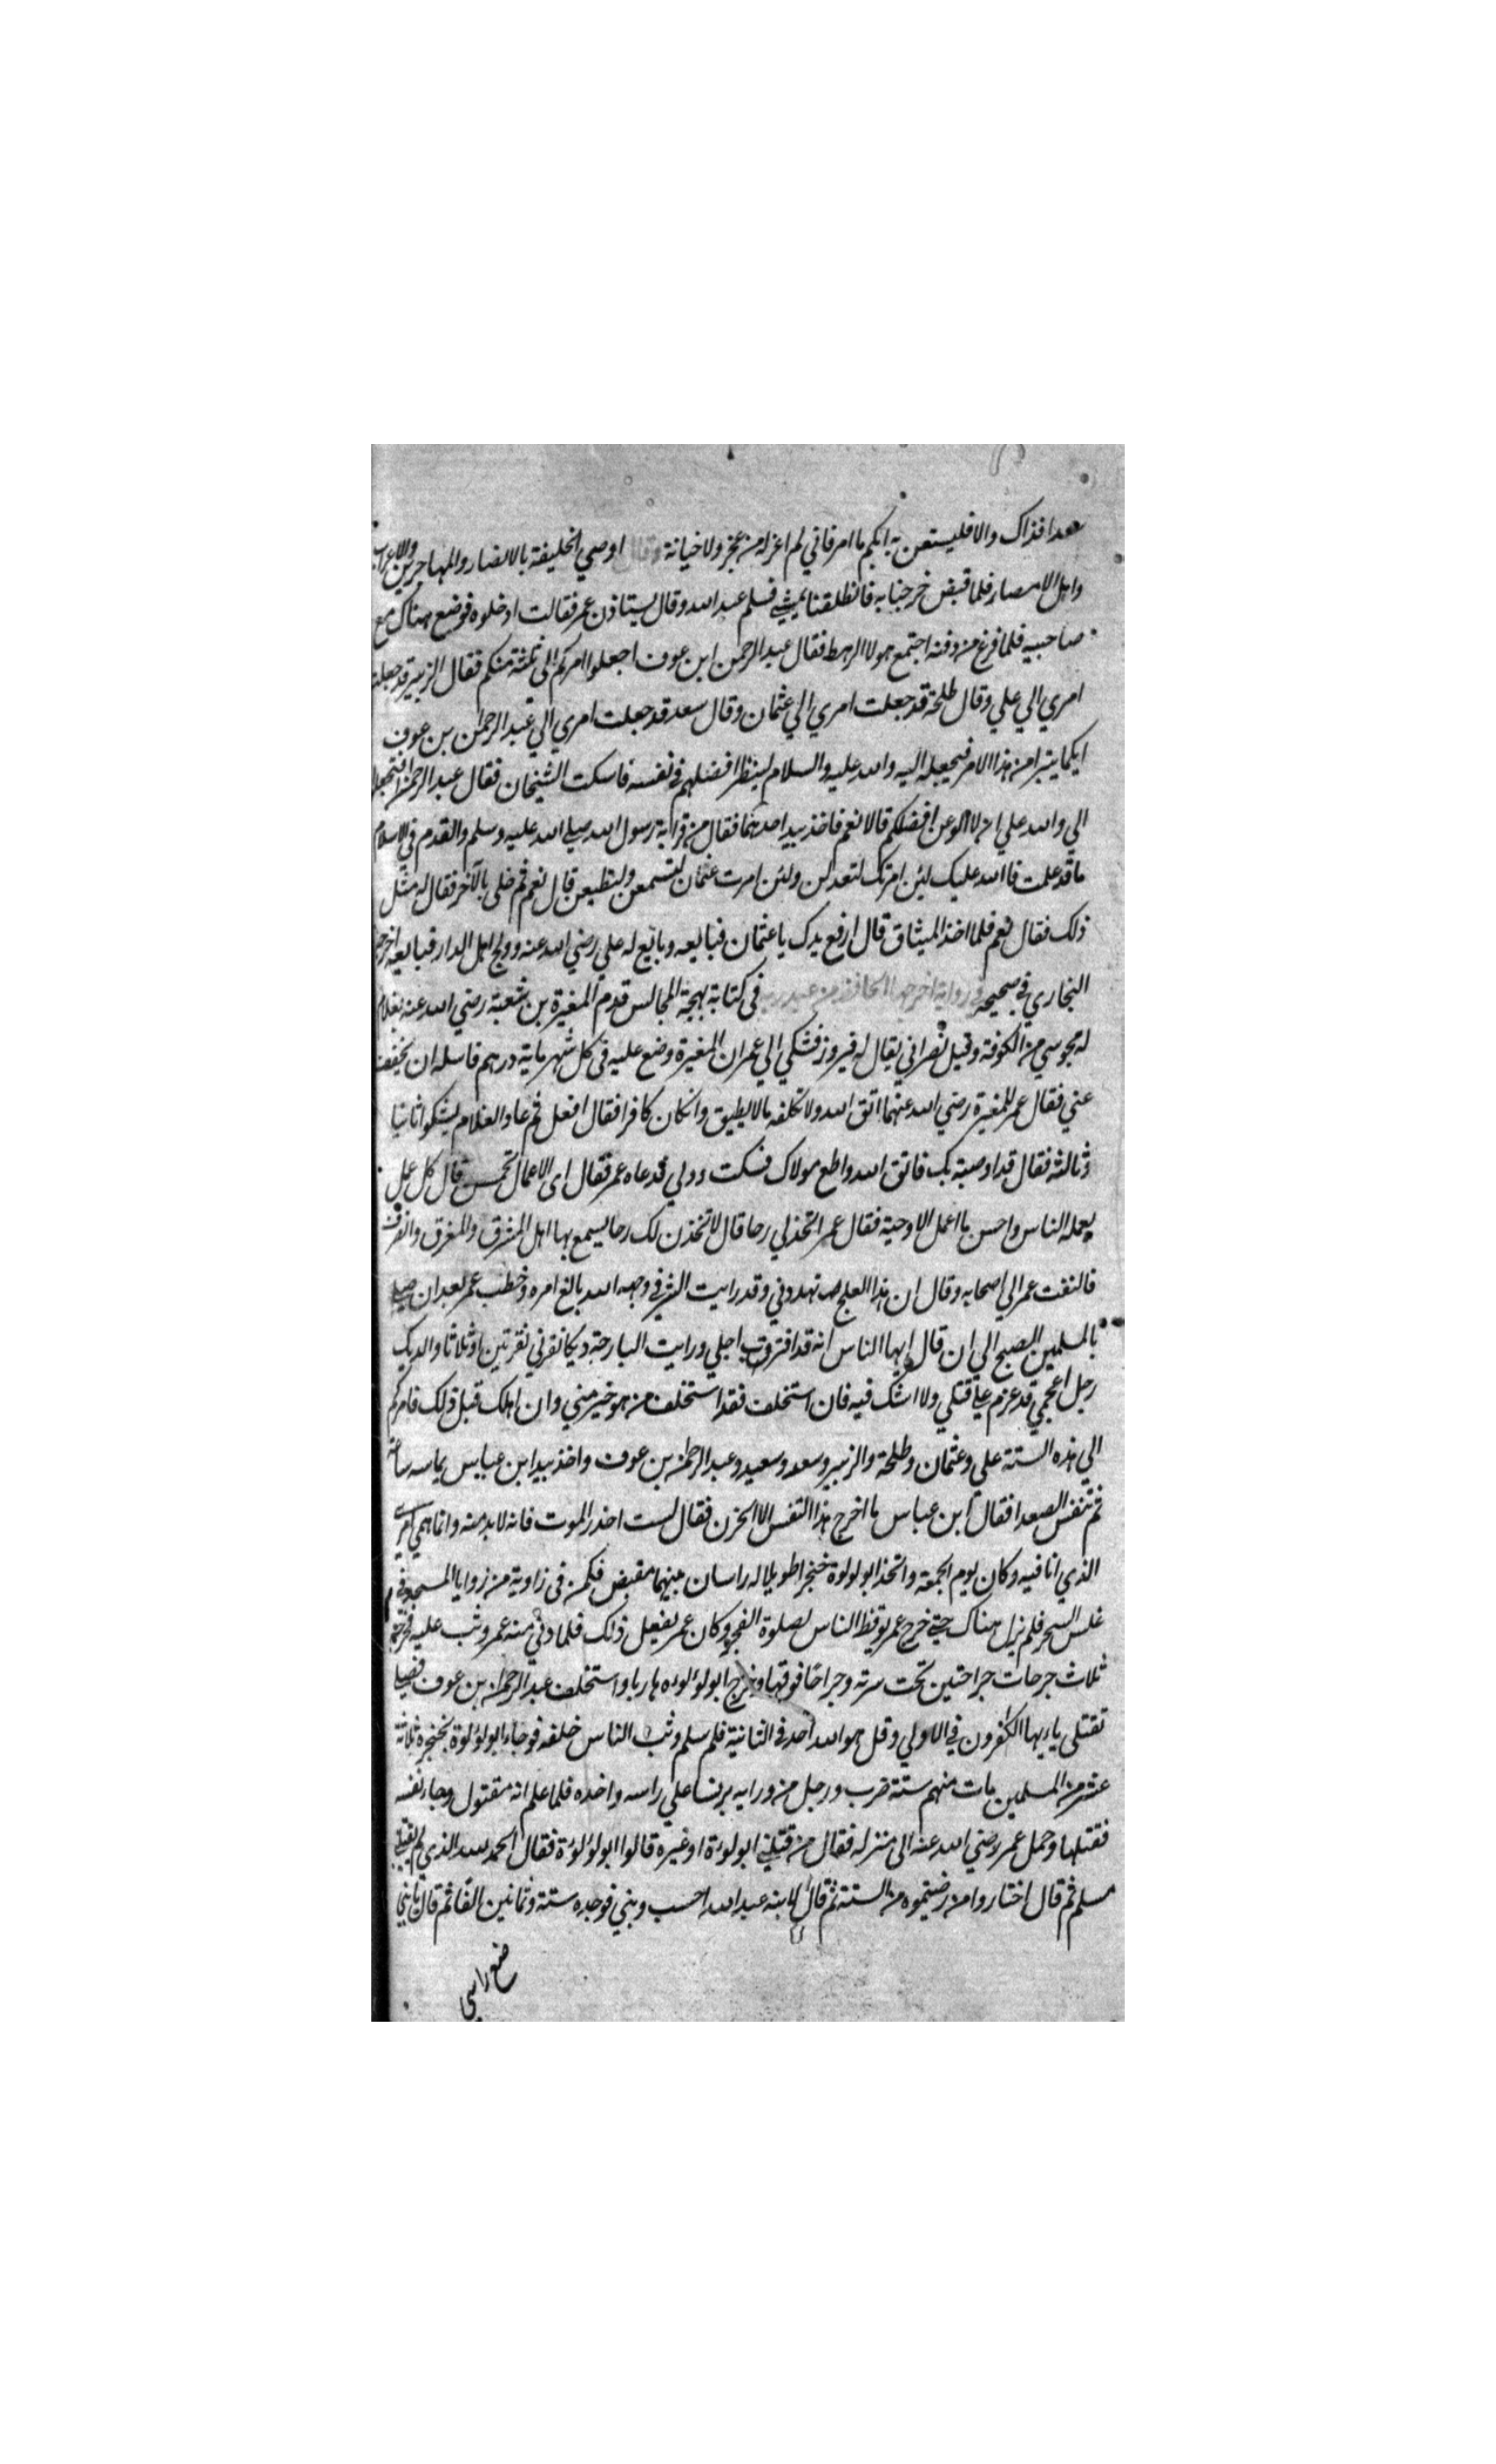 سعدا فذاك والا فليستعن به ايكم ما امر فاني لم اعزله من عجز ولا خيانة وقال اوصي الخليفة بالانصار والمهاجرين والاعراب
واهل الامصار فلما قبض خرجنا به فانطلقنا نمشي فسلم عبد الله وقال يستاذن عمر فقالت ادخلوه فوضع هناك مع
صاحبيه فلما فرغ من دفنه اجتمع هولا الرهط فقال عبد الرحمن ابن عوف اجعلوا امركم الى ثلثة منكم فقال الزبير قد جعلت
امري الي علي وقال طلحة قد جعلت امري الي عثمان وقال سعد قد جعلت امري الي عبد الرحمن بن عوف
ايكما يتبرا من هذا الامر فيجعله اليه والله عليه والسلام لينظر افضلهم في نفسه فاسكت الشيخان فقال عبد الرحمن افتجعلونه
الي والله علي ان لا الو عن افضلكم قالا نعم فاخذ بيد احدهما فقال من قرابة رسول الله صلي الله عليه وسلم والقدم في الاسلام
ما قد علمت فالله عليك لئن امرتك لتعدلن ولئن امرت عثمان لتسمعن ولتطيعن قال نعم ثم خلى بالآخر فقال له مثل
ذلك فقال نعم فلما اخذ الميثاق قال ارفع يدك يا عثمان فبايعه وبايع له علي رضي الله عنه وولج اهل الدار فبايعه اخرجه
البخاري في صحيحه في رواية اخرجها الحافظ من عبد ربه في كتابة بهجة المجالس قدم المغيرة بن شعبة رضي الله عنه بغلام
له مجوسي من الكوفة وقيل نصراني يقال له فيروز فشكي الي عمر ان المغيرة وضع عليه في كل شهر ماية درهم فاسله ان يخفف
عني فقال عمر للمغيرة رضي الله عنهما اتق الله ولا تكلفه ما لا يطيق وان كان كافرا فقال افعل ثم عاد الغلام يشكوا ثانيا
وثالثه فقال قد اوصيته بك فاتق الله واطع مولاك فسكت وولي فدعاه عمر فقال اى الاعمال تحسن قال كل عمل
يعمله الناس واحسن ما اعمل الاوحية فقال عمر اتخذ لي رحا قال لاتخذن لك رحا يسمع بها اهل المشرق والمغرق وانصرف
فالتفت عمر الي اصحابه وقال ان هذا العلج تهددني وقد رايت الشر في وجهه الله بالغ امره وخطب عمر بعد ان صلي
بالمسلمين الصبح الي ان قال ايها الناس انه قد اقترب اجلي ورايت البارحة ديكا نقرني نقرتين او ثلاثا والديك
رجل اعجمي قد عزم علي قتلي ولا اشك فيه فان استخلف فقد استخلف من هو خير مني وان اهلك قبل ذلك فامركم
الي هذه الستة علي وعثمان وطلحة والزبير وسعد وسعيد وعبد الرحمن بن عوف واخذ بيد ابن عباس يماسه ساعة
ثم تنفس الصعدا فقال ابن عباس ما اخرج هذا التفس الا الحزن فقال لست احذر الموت فانه لابد منه وانما همي امري
الذي انا فيه وكان يوم الجمعة واتخذ ابو لولوة خنجرا طويلا له راسان بينهما مقبض فكمن في زاوية من زوايا المسجد في
غلس السحر فلم يزل هناك حتي خرج عمر يوقظ الناس لصلوة الفجر وكان عمر يفعل ذلك فلما دني منه عمر وثب عليه فجرحه
ثلاث جرحات جراحتين تحت سرته وجراحًا فوقها وخرج ابو لولوه هاربا واستخلف عبد الرحمن بن عوف فصلي
تقتلى ياءيها الكفرون في الاولي وقل هو الله احد في الثانية فلم سلم وثب الناس خلفه فوجاء ابو لولوة بخنجره ثلاثة
عشر من المسلمين مات منهم ستة ضرب ورجل من ورايه برنسا علي راسه واخده فلما علم انه مقتول وجاء نفسه
فقتلها وحمل عمر رضي الله عنه الى منزله فقال من قتلني ابو لوءة او غيره قالوا ابو لولوءة فقال الحمد لله الذي لم يقتلني
مسلم ثم قال اختاروا من رضيتموه من الستة ثم قال لابنه عبد الله احسب ديني فوجده ستة وثمانين الفًا ثم قال يا بني
ضع راسي